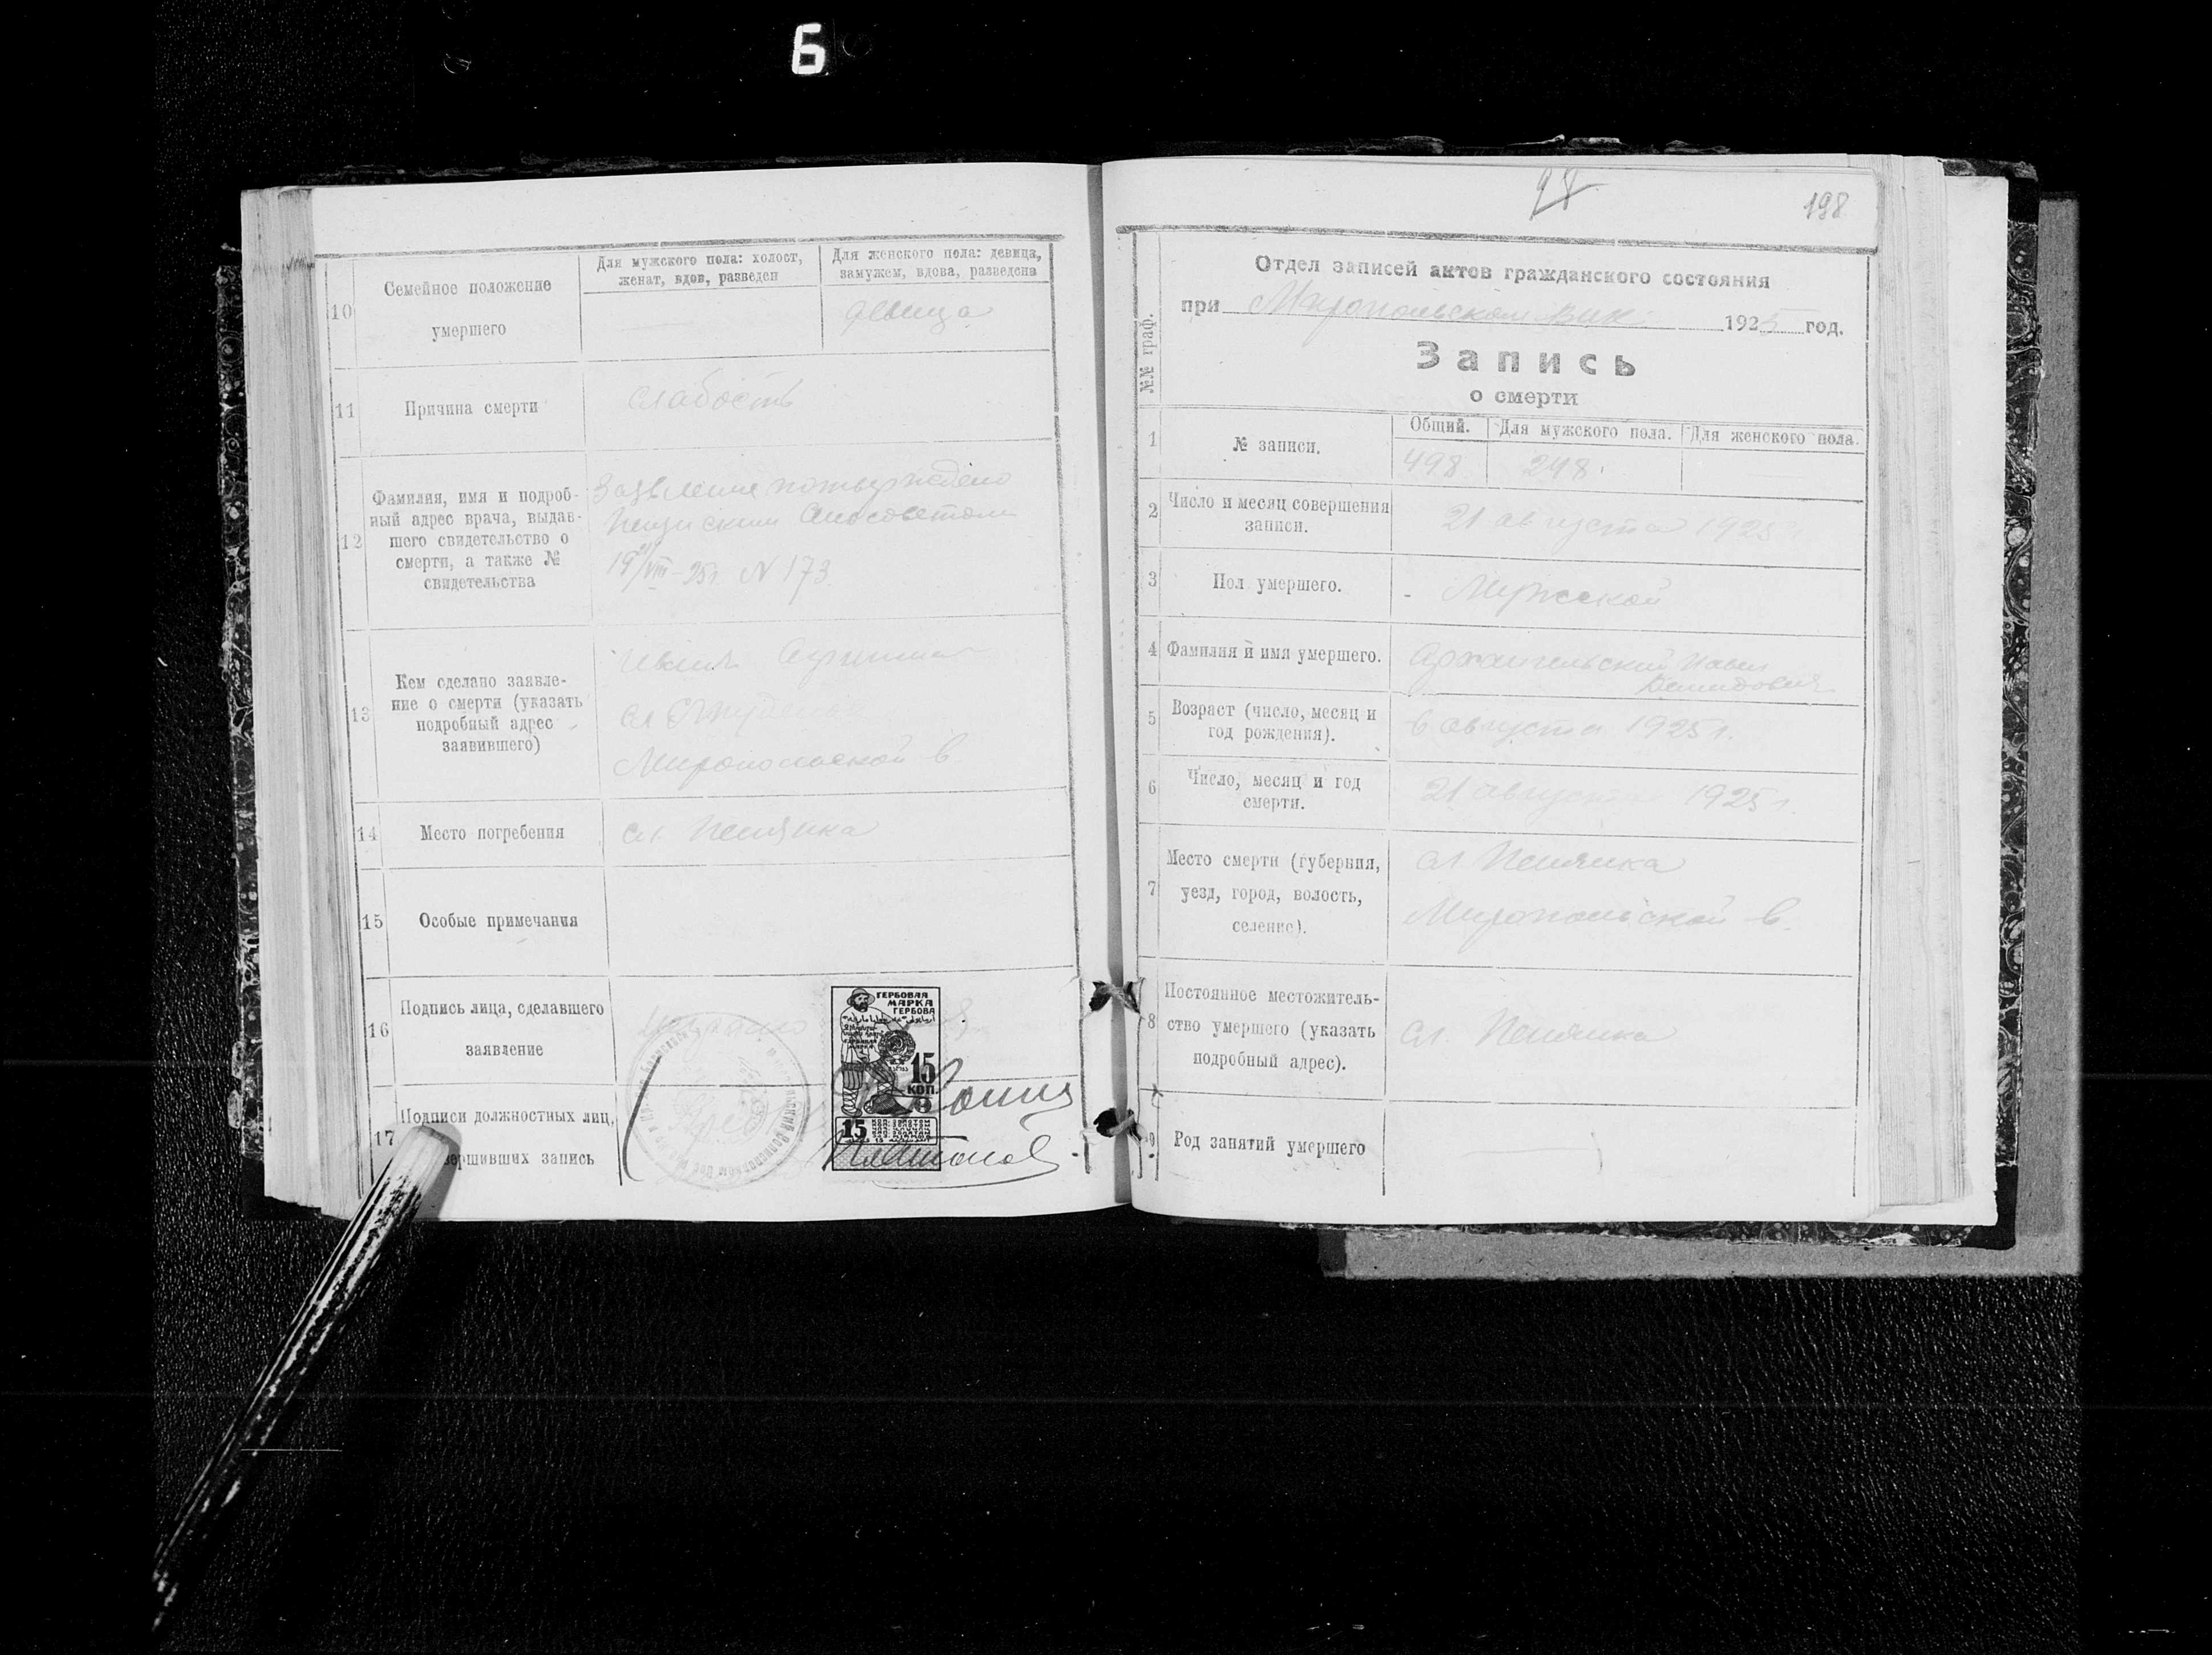 Б
10
Семейное положение
умершего
Для мужского пола: холост,
женат, вдов, разведен
Для женского пола: девица,
замужем, вдова, разведена
девица
11
Причина смерти
слабость
12
Фамилия, имя и подроб-
ный адрес врача, выдав-
шего свидетельство о
смерти, а также №
свидетельства
Заявление потверждено
сельсоветом
19/VIII-25г. N 173.
13
Кем сделано заявле-
ние о смерти (указать
подробный адрес
заявившего)
Иван
сл
Миропольской в.
14
Место погребения
сл. Пенянка
15
Особые примечания
16
Подпись лица, сделавшего
заявление
17
Подписи должностных лиц,
вершивших запись
ГЕРБОВАЯ
МАРКА
ГЕРБОВА
15
КОП.
15
28
198
№№ граф.
Отдел записей актов гражданского состояния
при Миропольском вик 1925 год.
Запись
о смерти
1
№ записи.
Общий.
Для мужского пола.
Для женского пола.
498
248
2
Число и месяц совершения
записи.
21 августа 1925 г.
3
Пол умершего.
- Мужской
4
Фамилия и имя умершего.
Архангельский Павел
Демидович
5
Возраст (число, месяц и
год рождения).
6 августа 1925 г.
6
Число, месяц и год
смерти.
21 августа 1925 г.
7
Место смерти (губерния,
уезд, город, волость,
селение).
сл Пенянка
Миропольской в.
8
Постоянное местожитель-
ство умершего (указать
подробный адрес).
сл. Пенянка
9
Род занятий умершего